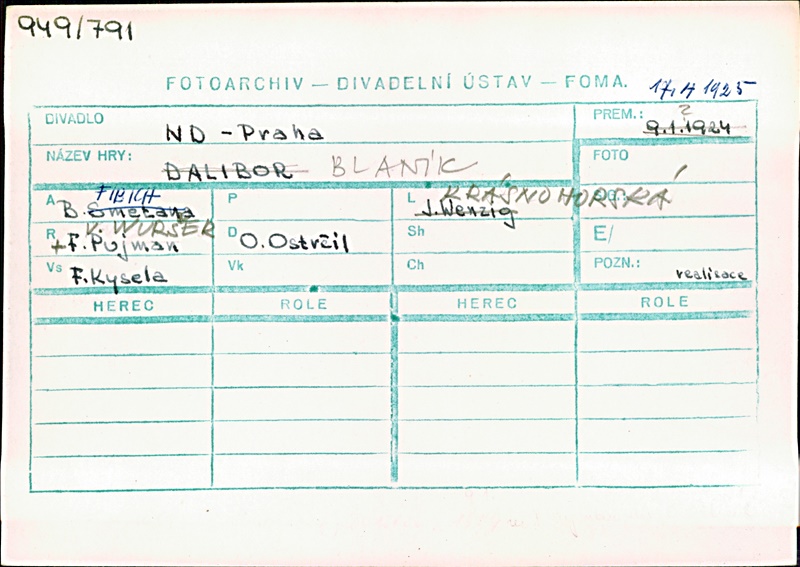 949/791
FOTOARCHIV — DIVADELNÍ ÚSTAV — FOMA. 17.4 1925
DIVADLO ND - Praha PREM.: 2 9.1.1924
NÁZEV HRY: DALIBOR BLANÍK FOTO
A B. Smetana FIBICH P L J. Wenzig KRÁSNOHORSKÁ
R + F. Pujman V. WURSER D O. Ostrčil Sh E/
Vs F. Kysela Vk Ch POZN.: realisace
HEREC ROLE HEREC ROLE